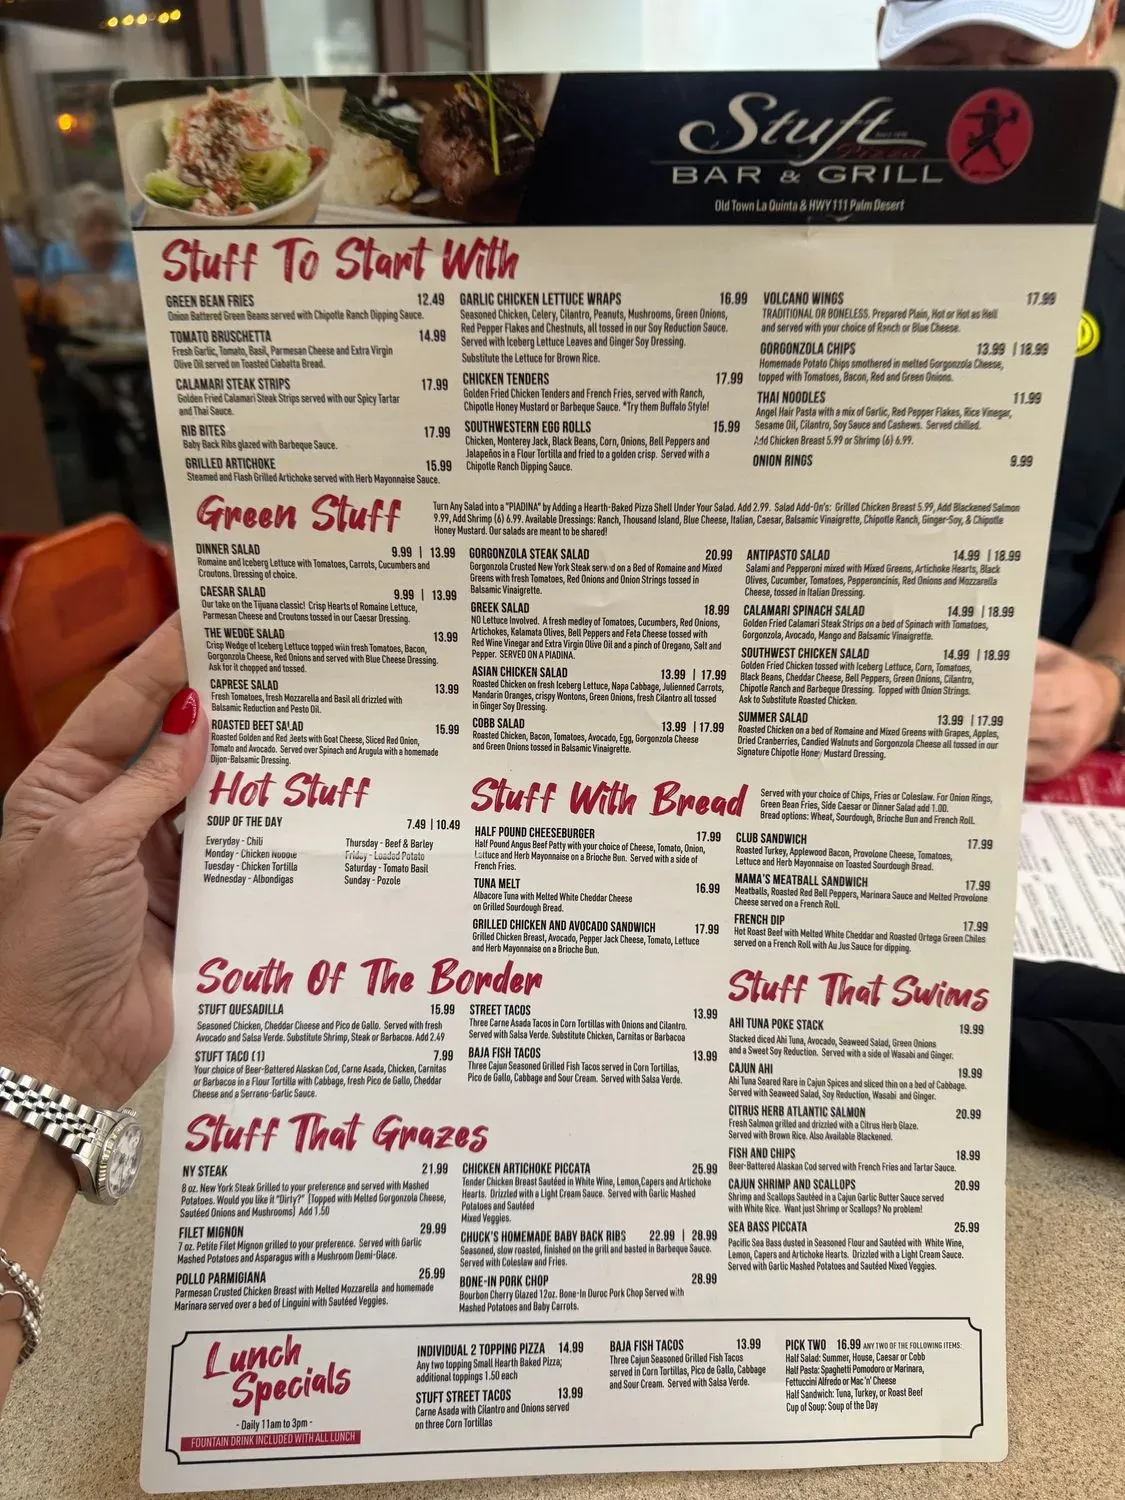 Stuft
BAR & GRILL
Old Town La Quinta & HWY 111 Palm Desert
Stuff To Start With
GREEN BEAN FRIES 12.49
Onion Battered Green Beans served with Chipotle Ranch Dipping Sauce.
TOMATO BRUSCHETTA 14.99
Fresh Garlic, Tomato, Basil, Parmesan Cheese and Extra Virgin
Olive Oil served on Toasted Ciabatta Bread.
CALAMARI STEAK STRIPS 17.99
Golden Fried Calamari Steak Strips served with our Spicy Tartar
and Thai Sauce.
RIB BITES 17.99
Baby Back Ribs glazed with Barbeque Sauce.
GRILLED ARTICHOKE 15.99
Steamed and Flash Grilled Artichoke served with Herb Mayonnaise Sauce.
GARLIC CHICKEN LETTUCE WRAPS 16.99
Seasoned Chicken, Celery, Cilantro, Peanuts, Mushrooms, Green Onions,
Red Pepper Flakes and Chestnuts, all tossed in our Soy Reduction Sauce.
Served with Iceberg Lettuce Leaves and Ginger Soy Dressing.
Substitute the Lettuce for Brown Rice.
CHICKEN TENDERS 17.99
Golden Fried Chicken Tenders and French Fries, served with Ranch,
Chipotle Honey Mustard or Barbeque Sauce. *Try them Buffalo Style!
SOUTHWESTERN EGG ROLLS 15.99
Chicken, Monterey Jack, Black Beans, Corn, Onions, Bell Peppers and
Jalapeños in a Flour Tortilla and fried to a golden crisp. Served with a
Chipotle Ranch Dipping Sauce.
VOLCANO WINGS 17.99
TRADITIONAL OR BONELESS. Prepared Plain, Hot or Hot as Hell
and served with your choice of Ranch or Blue Cheese.
GORGONZOLA CHIPS 13.99 | 18.99
Homemade Potato Chips smothered in melted Gorgonzola Cheese,
topped with Tomatoes, Bacon, Red and Green Onions.
THAI NOODLES 11.99
Angel Hair Pasta with a mix of Garlic, Red Pepper Flakes, Rice Vinegar,
Sesame Oil, Cilantro, Soy Sauce and Cashews. Served chilled.
Add Chicken Breast 5.99 or Shrimp (6) 6.99.
ONION RINGS 9.99
Green Stuff
Turn Any Salad into a "PIADINA" by Adding a Hearth-Baked Pizza Shell Under Your Salad. Add 2.99. Salad Add-On's: Grilled Chicken Breast 5.99, Add Blackened Salmon
9.99, Add Shrimp (6) 6.99. Available Dressings: Ranch, Thousand Island, Blue Cheese, Italian, Caesar, Balsamic Vinaigrette, Chipotle Ranch, Ginger-Soy, & Chipotle
Honey Mustard. Our salads are meant to be shared!
DINNER SALAD 9.99 | 13.99
Romaine and Iceberg Lettuce with Tomatoes, Carrots, Cucumbers and
Croutons. Dressing of choice.
CAESAR SALAD 9.99 | 13.99
Our take on the Tijuana classic! Crisp Hearts of Romaine Lettuce,
Parmesan Cheese and Croutons tossed in our Caesar Dressing.
THE WEDGE SALAD 13.99
Crisp Wedge of Iceberg Lettuce topped with fresh Tomatoes, Bacon,
Gorgonzola Cheese, Red Onions and served with Blue Cheese Dressing.
Ask for it chopped and tossed.
CAPRESE SALAD 13.99
Fresh Tomatoes, fresh Mozzarella and Basil all drizzled with
Balsamic Reduction and Pesto Oil.
ROASTED BEET SALAD 15.99
Roasted Golden and Red Beets with Goat Cheese, Sliced Red Onion,
Tomato and Avocado. Served over Spinach and Arugula with a homemade
Dijon-Balsamic Dressing.
GORGONZOLA STEAK SALAD 20.99
Gorgonzola Crusted New York Steak served on a Bed of Romaine and Mixed
Greens with fresh Tomatoes, Red Onions and Onion Strings tossed in
Balsamic Vinaigrette.
GREEK SALAD 18.99
NO Lettuce Involved. A fresh medley of Tomatoes, Cucumbers, Red Onions,
Artichokes, Kalamata Olives, Bell Peppers and Feta Cheese tossed with
Red Wine Vinegar and Extra Virgin Olive Oil and a pinch of Oregano, Salt and
Pepper. SERVED ON A PIADINA.
ASIAN CHICKEN SALAD 13.99 | 17.99
Roasted Chicken on fresh Iceberg Lettuce, Napa Cabbage, Julienned Carrots,
Mandarin Oranges, crispy Wontons, Green Onions, fresh Cilantro all tossed
in Ginger Soy Dressing.
COBB SALAD 13.99 | 17.99
Roasted Chicken, Bacon, Tomatoes, Avocado, Egg, Gorgonzola Cheese
and Green Onions tossed in Balsamic Vinaigrette.
ANTIPASTO SALAD 14.99 | 18.99
Salami and Pepperoni mixed with Mixed Greens, Artichoke Hearts, Black
Olives, Cucumber, Tomatoes, Pepperoncinis, Red Onions and Mozzarella
Cheese, tossed in Italian Dressing.
CALAMARI SPINACH SALAD 14.99 | 18.99
Golden Fried Calamari Steak Strips on a bed of Spinach with Tomatoes,
Gorgonzola, Avocado, Mango and Balsamic Vinaigrette.
SOUTHWEST CHICKEN SALAD 14.99 | 18.99
Golden Fried Chicken tossed with Iceberg Lettuce, Corn, Tomatoes,
Black Beans, Cheddar Cheese, Bell Peppers, Green Onions, Cilantro,
Chipotle Ranch and Barbeque Dressing. Topped with Onion Strings.
Ask to Substitute Roasted Chicken.
SUMMER SALAD 13.99 | 17.99
Roasted Chicken on a bed of Romaine and Mixed Greens with Grapes, Apples,
Dried Cranberries, Candied Walnuts and Gorgonzola Cheese all tossed in our
Signature Chipotle Honey Mustard Dressing.
Hot Stuff
SOUP OF THE DAY 7.49 | 10.49
Everyday - Chili
Monday - Chicken Noodle
Tuesday - Chicken Tortilla
Wednesday - Albondigas
Thursday - Beef & Barley
Friday - Loaded Potato
Saturday - Tomato Basil
Sunday - Pozole
Stuff With Bread
Served with your choice of Chips, Fries or Coleslaw. For Onion Rings,
Green Bean Fries, Side Caesar or Dinner Salad add 1.00.
Bread options: Wheat, Sourdough, Brioche Bun and French Roll.
HALF POUND CHEESEBURGER 17.99
Half Pound Angus Beef Patty with your choice of Cheese, Tomato, Onion,
Lettuce and Herb Mayonnaise on a Brioche Bun. Served with a side of
French Fries.
TUNA MELT 16.99
Albacore Tuna with Melted White Cheddar Cheese
on Grilled Sourdough Bread.
GRILLED CHICKEN AND AVOCADO SANDWICH 17.99
Grilled Chicken Breast, Avocado, Pepper Jack Cheese, Tomato, Lettuce
and Herb Mayonnaise on a Brioche Bun.
CLUB SANDWICH 17.99
Roasted Turkey, Applewood Bacon, Provolone Cheese, Tomatoes,
Lettuce and Herb Mayonnaise on Toasted Sourdough Bread.
MAMA'S MEATBALL SANDWICH 17.99
Meatballs, Roasted Red Bell Peppers, Marinara Sauce and Melted Provolone
Cheese served on a French Roll.
FRENCH DIP 17.99
Hot Roast Beef with Melted White Cheddar and Roasted Ortega Green Chiles
served on a French Roll with Au Jus Sauce for dipping.
South Of The Border
STUFT QUESADILLA 15.99
Seasoned Chicken, Cheddar Cheese and Pico de Gallo. Served with fresh
Avocado and Salsa Verde. Substitute Shrimp, Steak or Barbacoa. Add 2.49
STUFT TACO (1) 7.99
Your choice of Beer-Battered Alaskan Cod, Carne Asada, Chicken, Carnitas
or Barbacoa in a Flour Tortilla with Cabbage, fresh Pico de Gallo, Cheddar
Cheese and a Serrano-Garlic Sauce.
STREET TACOS 13.99
Three Carne Asada Tacos in Corn Tortillas with Onions and Cilantro.
Served with Salsa Verde. Substitute Chicken, Carnitas or Barbacoa
BAJA FISH TACOS 13.99
Three Cajun Seasoned Grilled Fish Tacos served in Corn Tortillas,
Pico de Gallo, Cabbage and Sour Cream. Served with Salsa Verde.
Stuff That Swims
AHI TUNA POKE STACK 19.99
Stacked diced Ahi Tuna, Avocado, Seaweed Salad, Green Onions
and a Sweet Soy Reduction. Served with a side of Wasabi and Ginger.
CAJUN AHI 19.99
Ahi Tuna Seared Rare in Cajun Spices and sliced thin on a bed of Cabbage.
Served with Seaweed Salad, Soy Reduction, Wasabi and Ginger.
CITRUS HERB ATLANTIC SALMON 20.99
Fresh Salmon grilled and drizzled with a Citrus Herb Glaze.
Served with Brown Rice. Also Available Blackened.
FISH AND CHIPS 18.99
Beer-Battered Alaskan Cod served with French Fries and Tartar Sauce.
CAJUN SHRIMP AND SCALLOPS 20.99
Shrimp and Scallops Sautéed in a Cajun Garlic Butter Sauce served
with White Rice. Want just Shrimp or Scallops? No problem!
SEA BASS PICCATA 25.99
Pacific Sea Bass dusted in Seasoned Flour and Sautéed with White Wine,
Lemon, Capers and Artichoke Hearts. Drizzled with a Light Cream Sauce.
Served with Garlic Mashed Potatoes and Sautéed Mixed Veggies.
Stuff That Grazes
NY STEAK 21.99
8 oz. New York Steak Grilled to your preference and served with Mashed
Potatoes. Would you like it "Dirty?" [Topped with Melted Gorgonzola Cheese,
Sautéed Onions and Mushrooms] Add 1.50
FILET MIGNON 29.99
7 oz. Petite Filet Mignon grilled to your preference. Served with Garlic
Mashed Potatoes and Asparagus with a Mushroom Demi-Glace.
POLLO PARMIGIANA 25.99
Parmesan Crusted Chicken Breast with Melted Mozzarella and homemade
Marinara served over a bed of Linguini with Sautéed Veggies.
CHICKEN ARTICHOKE PICCATA 25.99
Tender Chicken Breast Sautéed in White Wine, Lemon,Capers and Artichoke
Hearts. Drizzled with a Light Cream Sauce. Served with Garlic Mashed
Potatoes and Sautéed
Mixed Veggies.
CHUCK'S HOMEMADE BABY BACK RIBS 22.99 | 28.99
Seasoned, slow roasted, finished on the grill and basted in Barbeque Sauce.
Served with Coleslaw and Fries.
BONE-IN PORK CHOP 28.99
Bourbon Cherry Glazed 12oz. Bone-In Duroc Pork Chop Served with
Mashed Potatoes and Baby Carrots.
Lunch
Specials
- Daily 11am to 3pm -
FOUNTAIN DRINK INCLUDED WITH ALL LUNCH
INDIVIDUAL 2 TOPPING PIZZA 14.99
Any two topping Small Hearth Baked Pizza;
additional toppings 1.50 each
STUFT STREET TACOS 13.99
Carne Asada with Cilantro and Onions served
on three Corn Tortillas
BAJA FISH TACOS 13.99
Three Cajun Seasoned Grilled Fish Tacos
served in Corn Tortillas, Pico de Gallo, Cabbage
and Sour Cream. Served with Salsa Verde.
PICK TWO 16.99 ANY TWO OF THE FOLLOWING ITEMS:
Half Salad: Summer, House, Caesar or Cobb
Half Pasta: Spaghetti Pomodoro or Marinara,
Fettuccini Alfredo or Mac 'n' Cheese
Half Sandwich: Tuna, Turkey, or Roast Beef
Cup of Soup: Soup of the Day